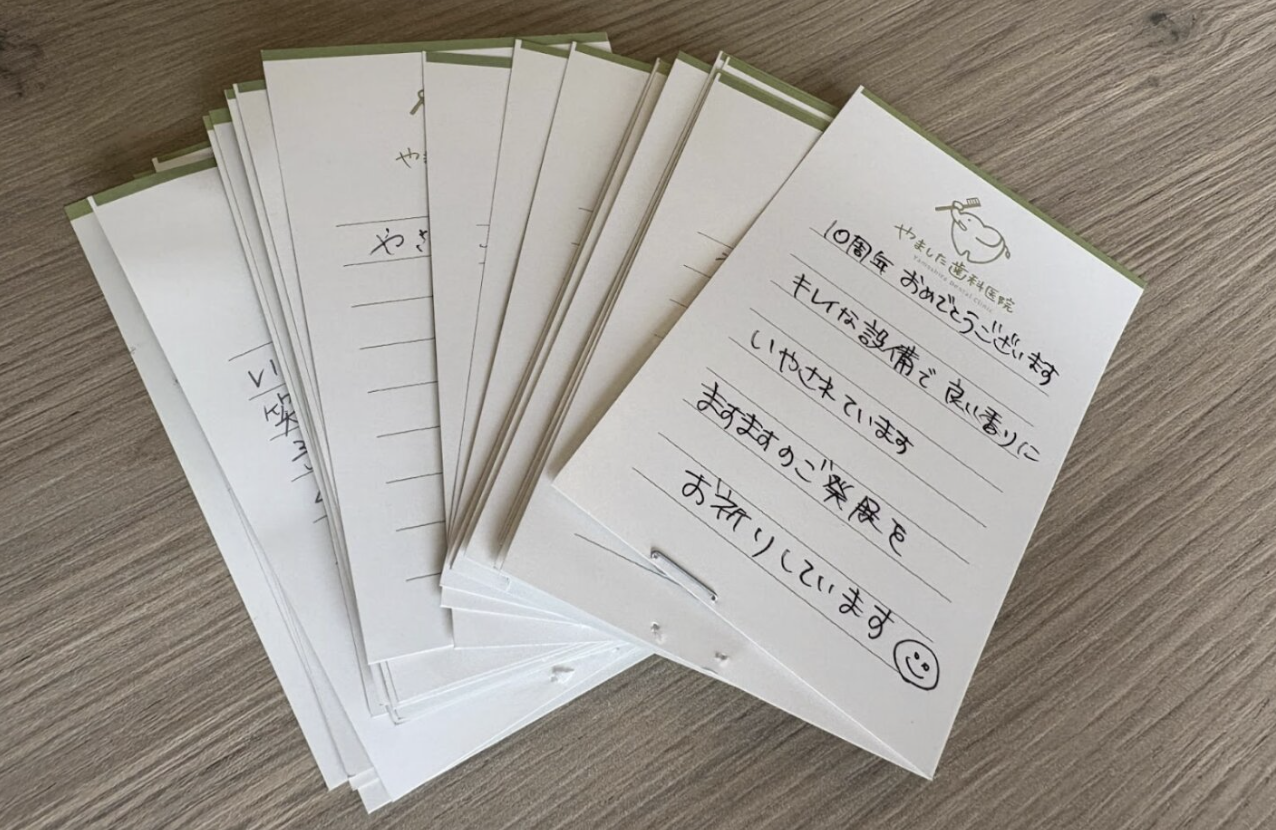 やました歯科医院
Yamashita Dental Clinic
10周年 おめでとうございます
キレイな設備で 良い香りに
いやされています
ますますのご発展を
お祈りしています
や
い
笑